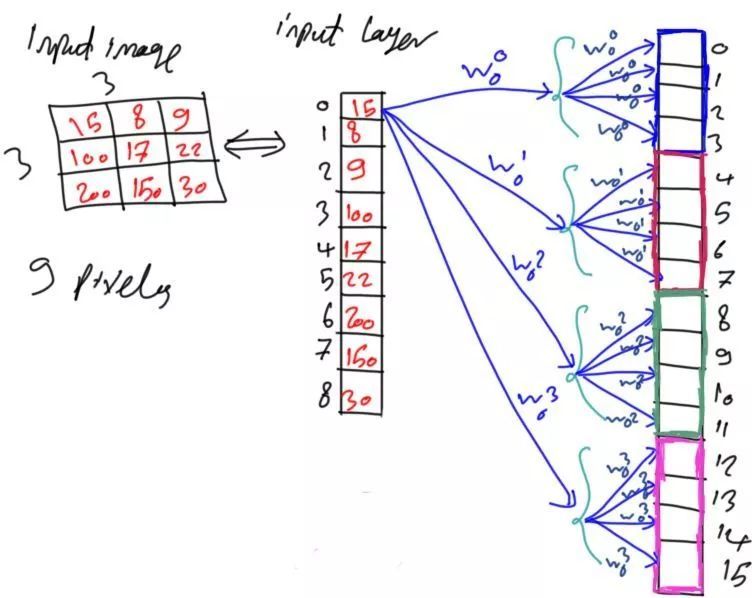 Input image
3
3
15 8 9
100 17 22
200 150 30
9 pixels
input layer
0 15
1 8
2 9
3 100
4 17
5 22
6 200
7 150
8 30
w₀⁰
w₀¹
w₀²
w₀³
w₀⁰ 0
w₀⁰ 1
w₀⁰ 2
w₀⁰ 3
w₀¹ 4
w₀¹ 5
w₀¹ 6
w₀¹ 7
w₀² 8
w₀² 9
w₀² 10
w₀² 11
w₀³ 12
w₀³ 13
w₀³ 14
w₀³ 15